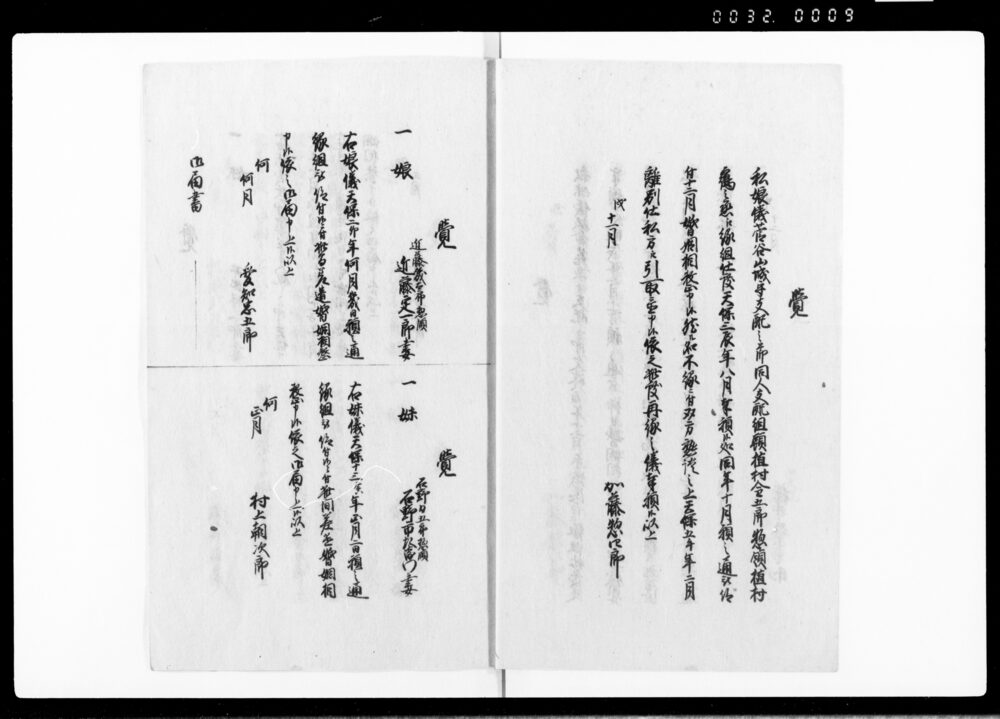 0032. 0009
覺
私娘儀菅谷山城守支配之節同人支配組頭植村全五郎惣領植村
 縁組仕度天保三辰年八月奉願候処同年十月願之通被仰
付十二月婚姻相整申候然処不縁ニ付双方熟談之上天保五午年二月
離別仕私方江引取置申候依之此度再縁之儀奉願候以上
戌十一月
加藤惣次郎
覺
近藤 惣領
一娘 近藤定一郎妻
右娘儀天保二卯年何月幾日願之通
縁組被仰付 婚姻相整
申候依之御届申上候以上
何何月
愛知忠五郎
御届書
覺
石野力五郎惣領
一妹 石野 妻
右妹儀天保十三寅年正月二日願之通
縁組被仰付 婚姻相
整申候依之御届申上候以上
何正月
村上朝次郎